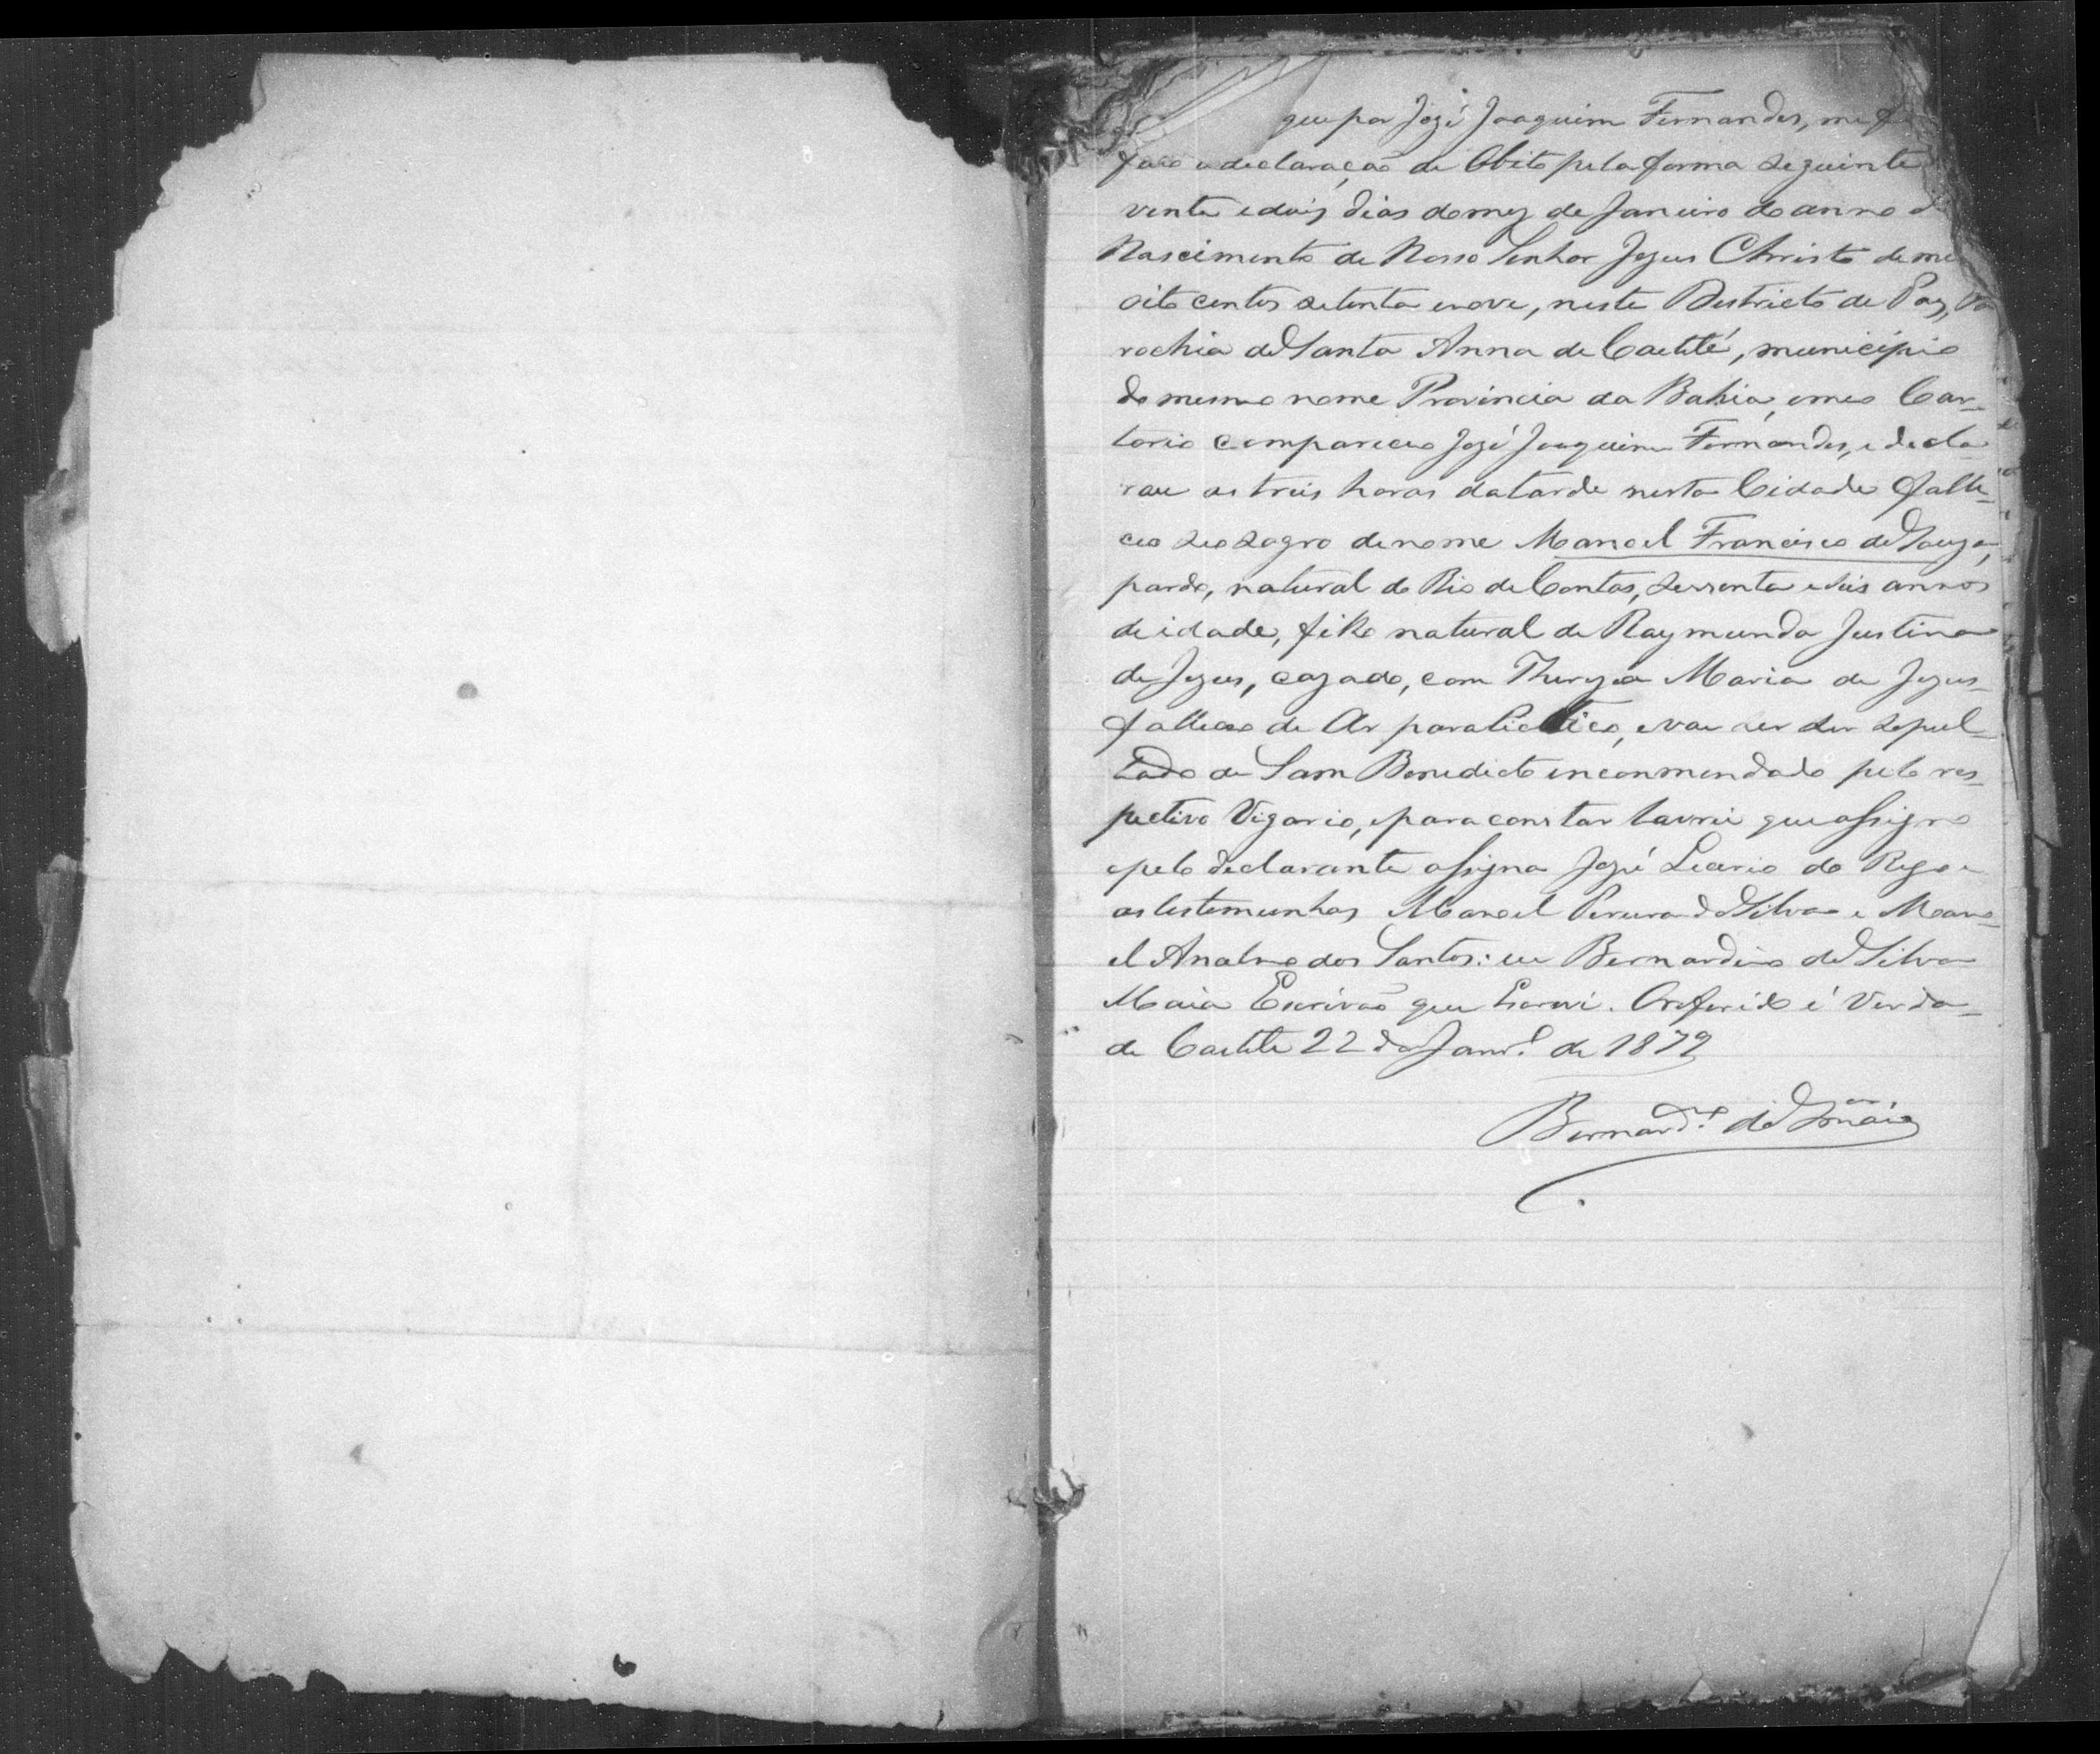 que por Jozé Joaquim Fernandes, me f
faço a declaração de Obito pela forma seguinte
vinte e dois dias do mez de Janeiro do anno d
Nascimento de Nosso Senhor Jezus Christo de mi
oito centos setenta enove, neste Destricto de Paz, Pa
rochia de Santa Anna de Caetité, municipio
do mesmo nome Provincia da Bahia, emeo Car-
torio compareceo Jozé Joaquim Fernandes, e decla
rou as treis horas datarde nesta Cidade falle-
ceo seo sogro denome Manoel Francisco de Souza,
pardo, natural do Rio de Contas, sessenta e seis annos
de idade, filho natural de Raymunda Justina
de Jezus, cazado, com Thereza Maria de Jezus
falleceo de Ar paralictico, e vai ser sepul-
tado de Sam Benedicto enconmendado pelo res-
pectivo Vigario, epara constar lavrei que assigno
epelo declarante assigna Jozé do Rego e
as testemunhas Manoel Pereira da Silva e Mano-
el dos Santos: eu Bernardino da Silva
Maia Escrivão que Escrevi. Oreferido é Verda-
de Caetite 22 de Janr.º de 1879
Bernard.º da S.ª Maia